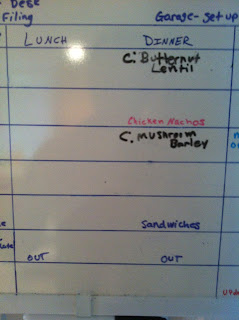 Desk
Filing
Garage- set up
LUNCH
DINNER
C: Butternut
Lentil
Chicken Nachos
C. mushroom
Barley
Sandwiches
OUT
OUT